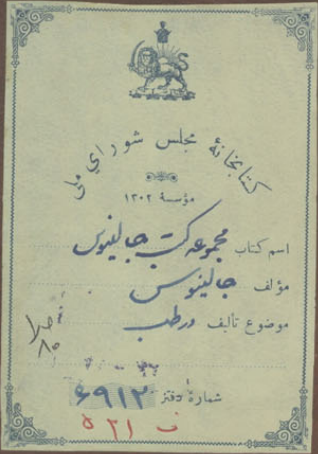 کتابخانهٔ مجلس شورای ملی
مؤسسهٔ ۱۳۰۲
اسم کتاب مجموعه کتب جالینوس
مؤلف جالینوس
موضوع تألیف در طب
شمارهٔ دفتر ۶۹۱۲
ف ۵۲۱